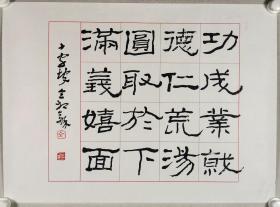 功德圓滿
成仁取義
業荒於嬉
就湯下面